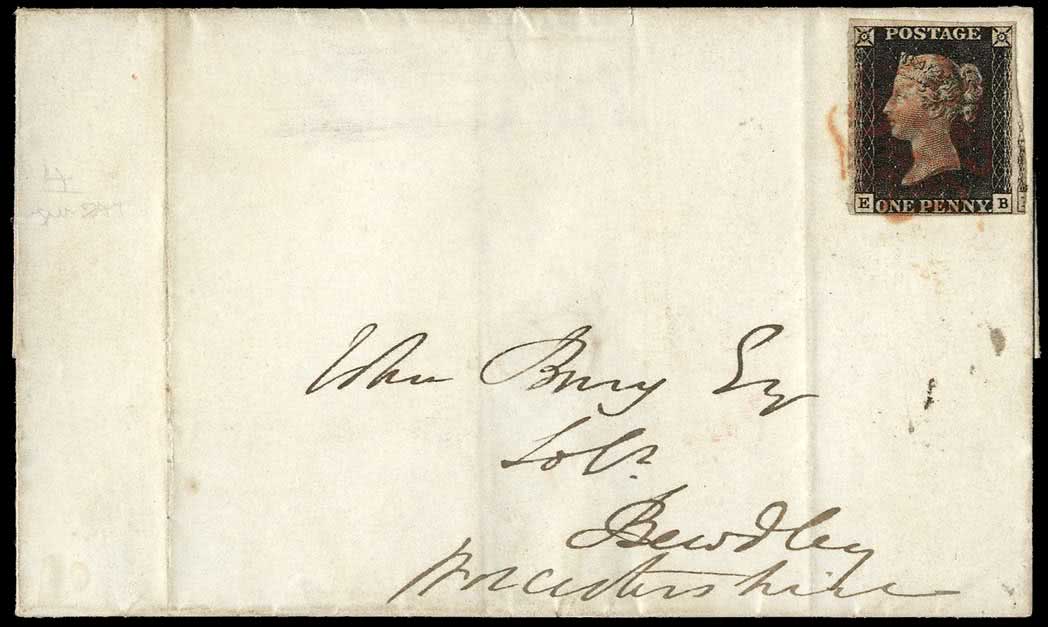 POSTAGE
E ONE PENNY. B
John Bury Esq
Solr.
Bewdley
Worcestershire